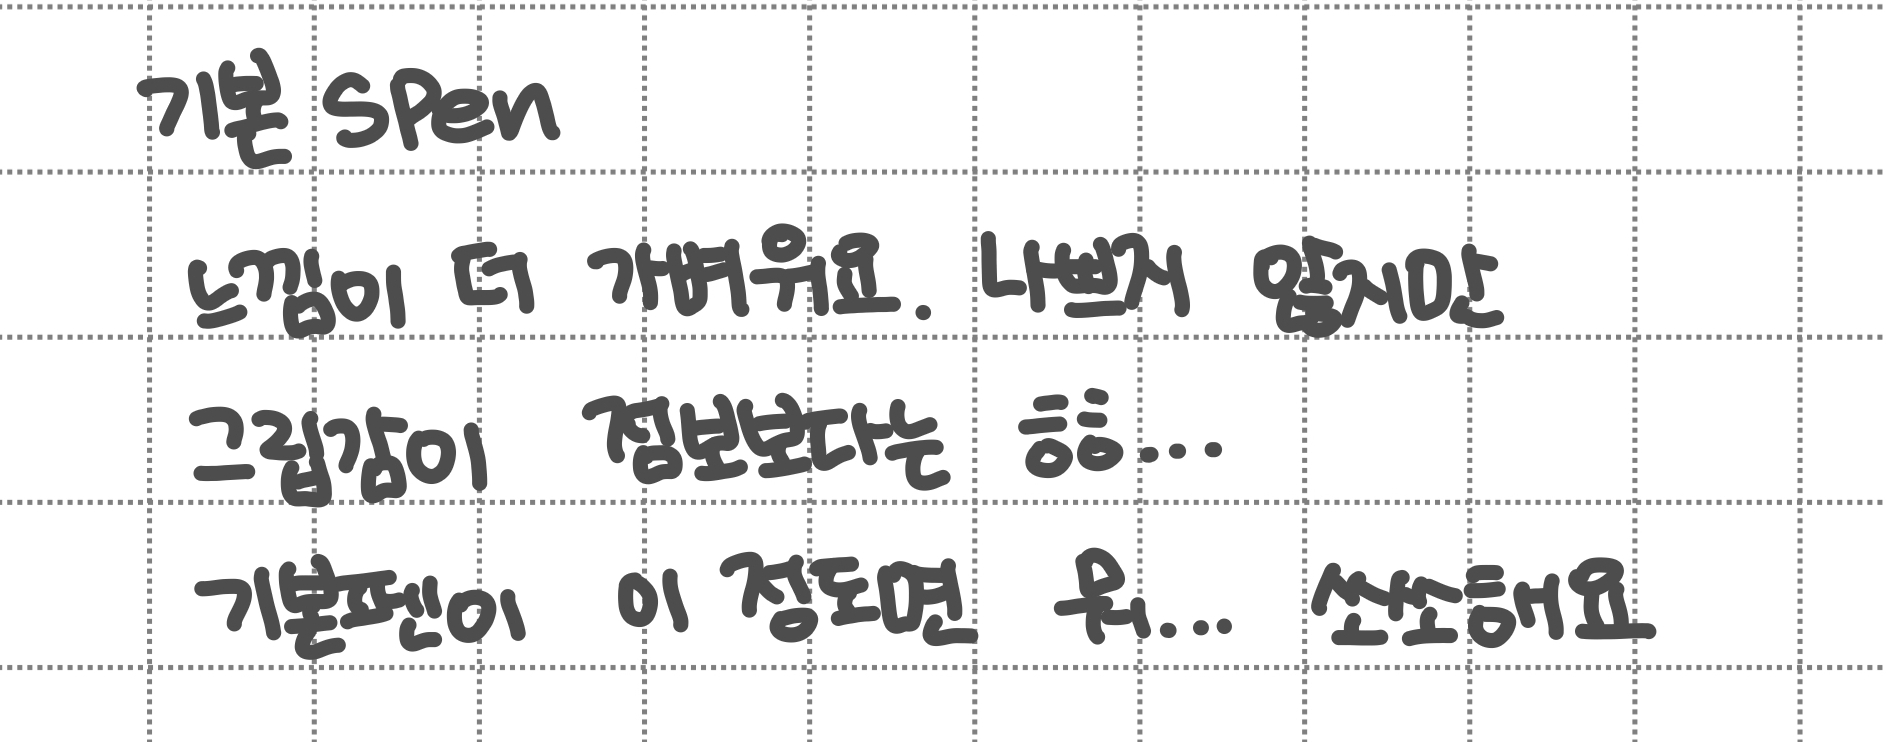 기본 SPen
느낌이 더 가벼워요. 나쁘지 않지만
그립감이 점보보다는 흠흠...
기본펜이 이 정도면 뭐... 쏘쏘해요